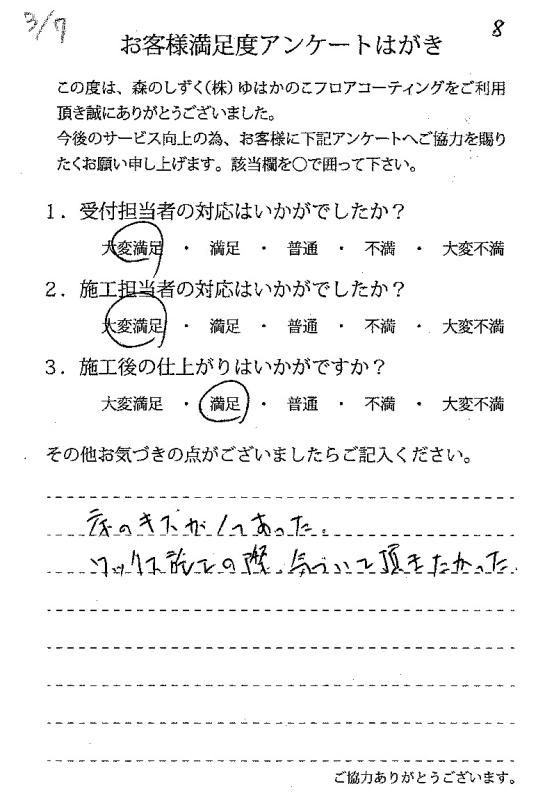 3/7
8
お客様満足度アンケートはがき
この度は、森のしずく(株)ゆはかのこフロアコーティングをご利用
頂き誠にありがとうございました。
今後のサービス向上の為、お客様に下記アンケートへご協力を賜り
たくお願い申し上げます。該当欄を〇で囲って下さい。
1．受付担当者の対応はいかがでしたか？
大変満足 ・ 満足 ・ 普通 ・ 不満 ・ 大変不満
2．施工担当者の対応はいかがでしたか？
大変満足 ・ 満足 ・ 普通 ・ 不満 ・ 大変不満
3．施工後の仕上がりはいかがですか？
大変満足 ・ 満足 ・ 普通 ・ 不満 ・ 大変不満
その他お気づきの点がございましたらご記入ください。
床のキズが1つあった。
ワックス施工の際、気づいて頂きたかった。
ご協力ありがとうございます。